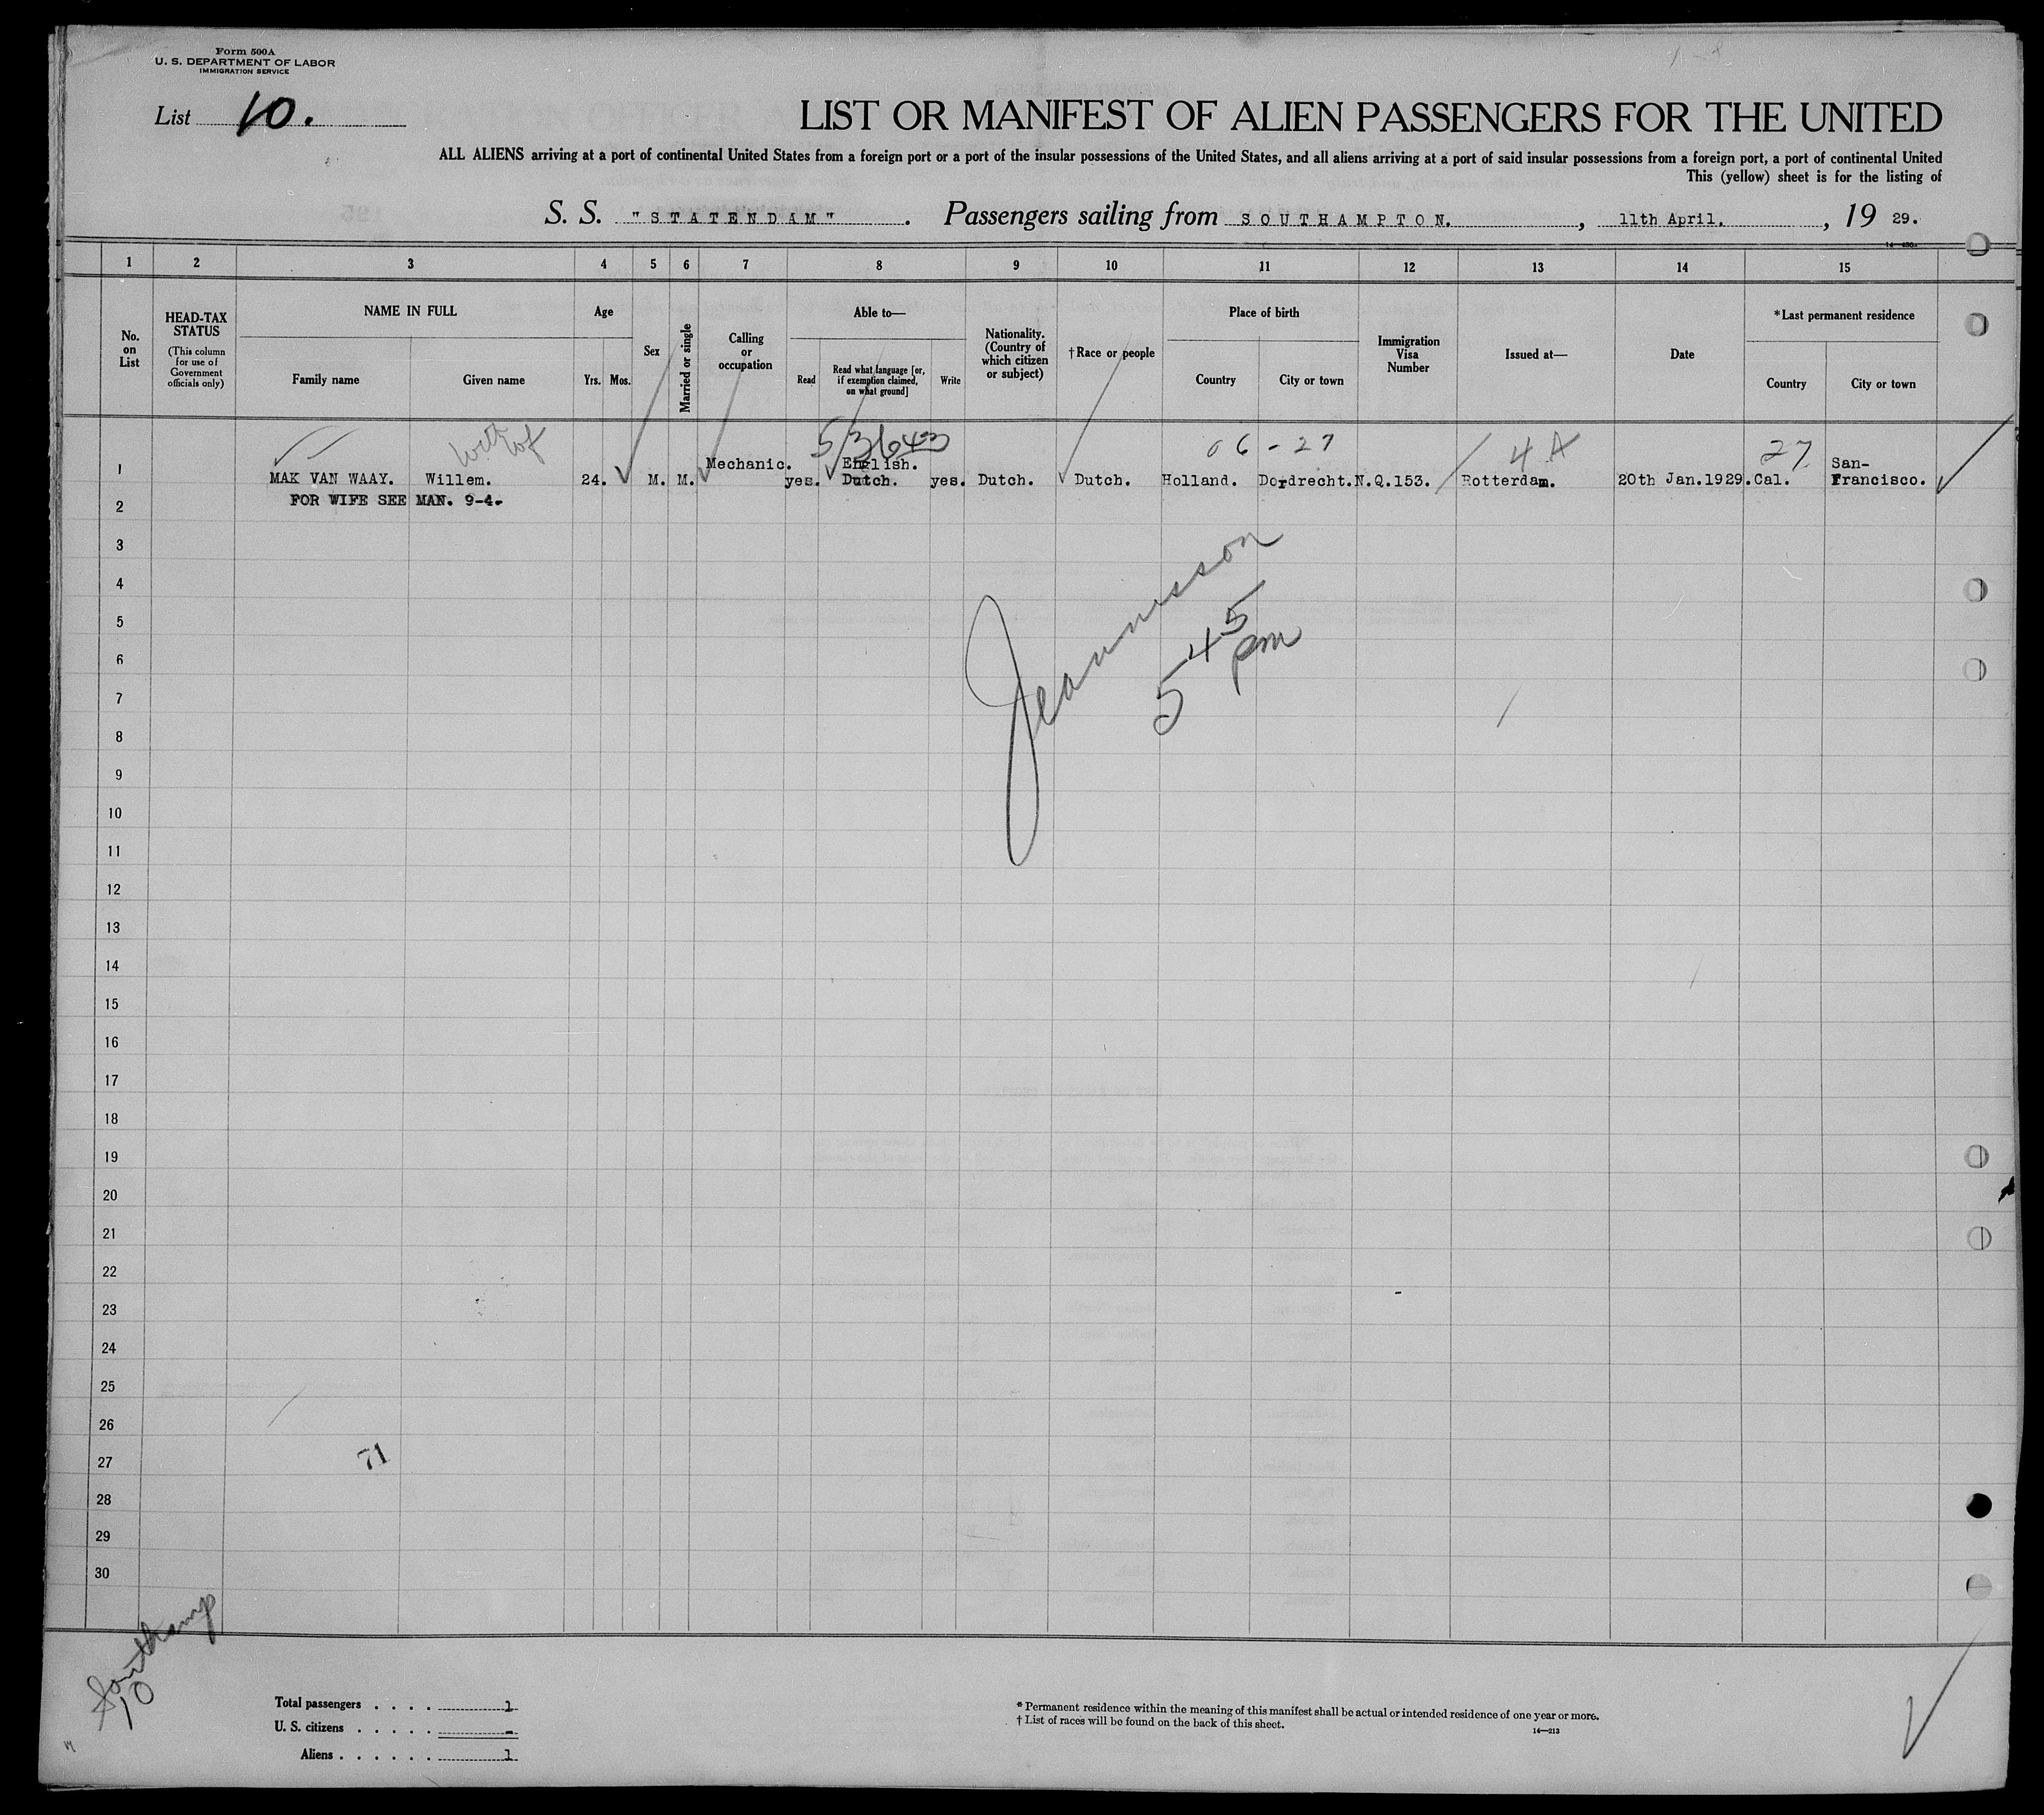 Form 500A
U. S. DEPARTMENT OF LABOR
IMMIGRATION SERVICE
List 10.
LIST OR MANIFEST OF ALIEN PASSENGERS FOR THE UNITED
ALL ALIENS arriving at a port of continental United States from a foreign port or a port of the insular possessions of the United States, and all aliens arriving at a port of said insular possessions from a foreign port, a port of continental United
This (yellow) sheet is for the listing of
S. S. "STATENDAM". Passengers sailing from SOUTHAMPTON. , 11th April. , 19 29.
1 2 3 4 5 6 7 8 9 10 11 12 13 14 15
No. on List
HEAD-TAX STATUS
(This column for use of Government officials only)
NAME IN FULL
Family name
Given name
Age
Yrs. Mos.
Sex
Married or single
Calling or occupation
Able to—
Read
Read what language [or, if exemption claimed, on what ground]
Write
Nationality. (Country of which citizen or subject)
†Race or people
Place of birth
Country
City or town
Immigration Visa Number
Issued at—
Date
*Last permanent residence
Country
City or town
06-27 4A 27
1 MAK VAN WAAY. Willem. 24. M. M. Mechanic. yes. English. Dutch. yes. Dutch. Dutch. Holland. Dordrecht. N.Q.153. Rotterdam. 20th Jan.1929. Cal. San-Francisco.
FOR WIFE SEE MAN. 9-4.
2
3
4
5
6
7
8
9
10
11
12
13
14
15
16
17
18
19
20
21
22
23
24
25
26
27
28
29
30
5 45 pm
71
Southamp
10
Total passengers . . . . 1
U. S. citizens . . . . . -
Aliens . . . . . . 1
* Permanent residence within the meaning of this manifest shall be actual or intended residence of one year or more.
† List of races will be found on the back of this sheet.
14—213